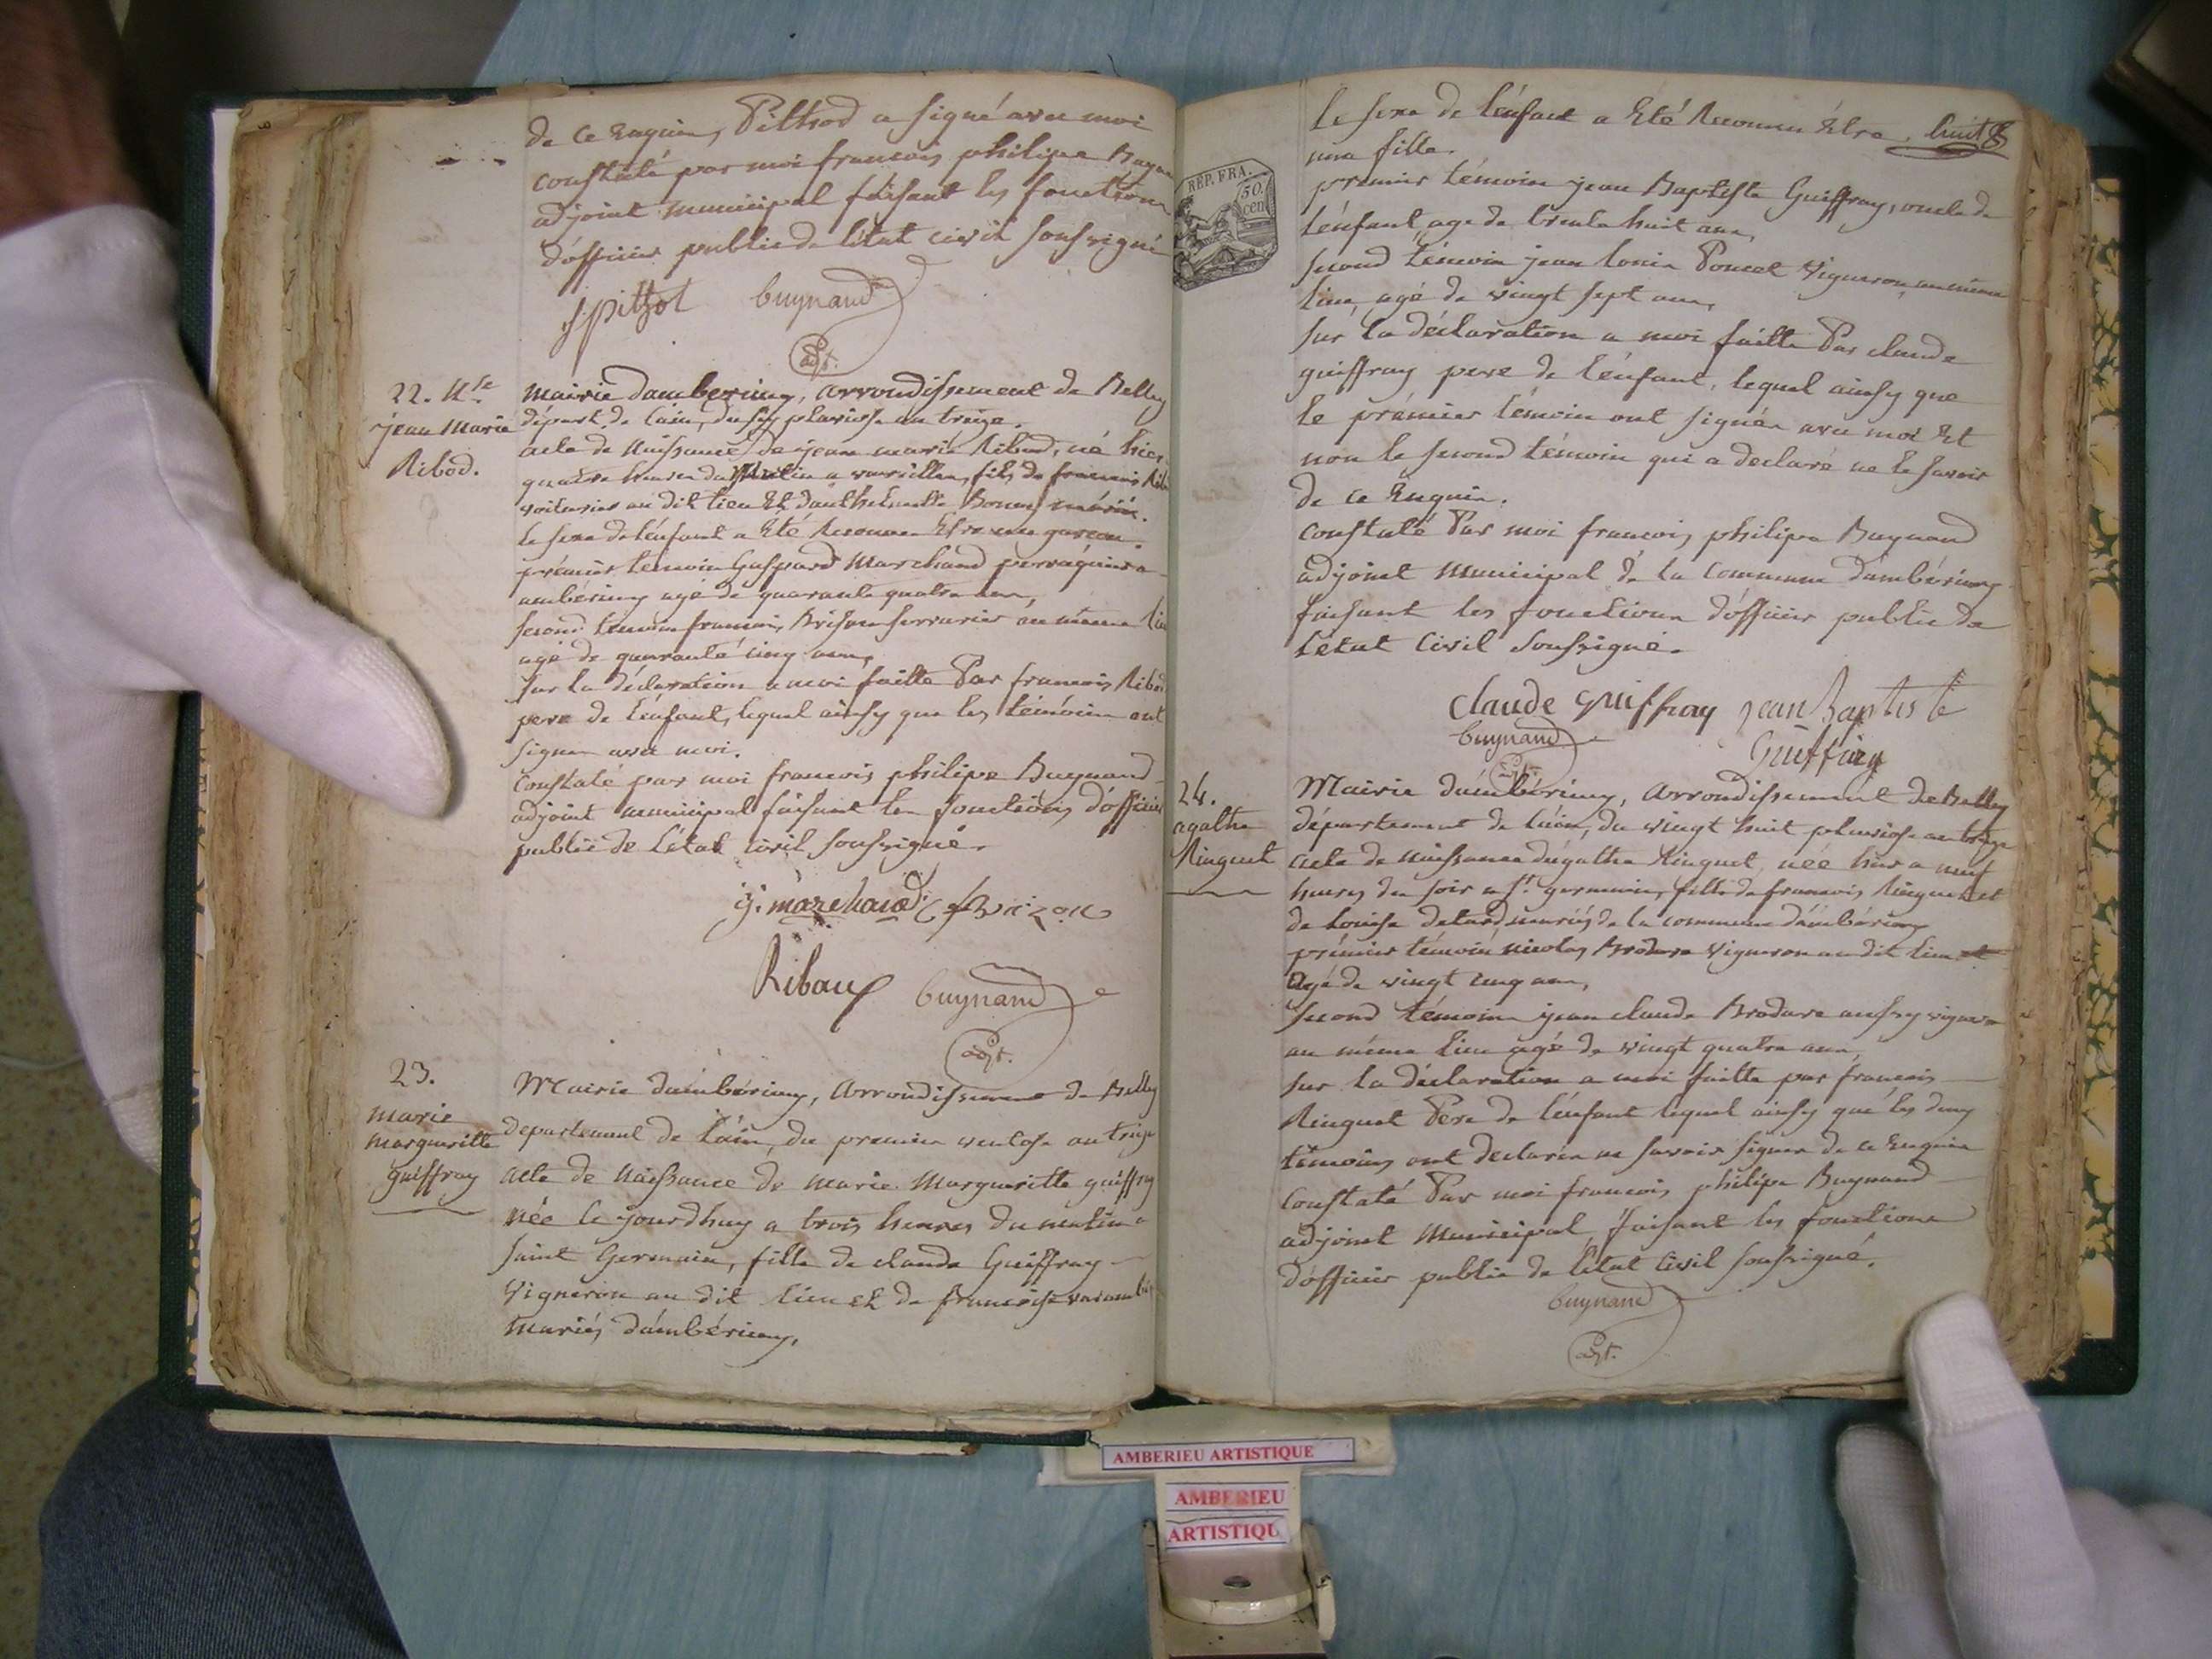 de ce Enquis, Pithod a signé avec moi
constaté par moi francois philipe Buyn
adjoint municipal faisant les fonctions
d'officier public de l'état civil soussigné
J pitzot buynand
adjt.
22. N.se
jean Marie
Ribod.
mairie dambérieux, arrondissement de Belley
départ. de l'ain, du pluviose an treize.
acte de Naissance de jean marie Ribod, né hier
quatre heures du Matin a vareilles, fils de francois Rib
voiturier au dit lieu Et d'anthelmette Bonne mariés.
le sexe de l'enfant a Eté Reconnu Etre un garcon.
prémier témoin Gaspard Marchand perruquier a
ambérieux agé de quarante quatre ans,
second témoin francois Brison serrurier au même lieu
agé de quarante cinq ans,
sur la déclaration a moi faitte Par francois Ribod
pere de l'enfant, lequel ainsy que les témoins ont
signés avec moi.
Constaté par moi francois philipe Buynand
adjoint municipal faisant les fonctions d'officier
public de L'état civil soussigné.
g. marchand f Brizon
Ribaud buynand
adjt.
23.
marie
margueritte
guiffray
Mairie dámbérieux, Arrondissement de Belley
département de L'ain, du premier ventose an treize
acte de Naissance de marie Margueritte guiffray
née le jourdhuy a trois heures du matin a
saint Germain, fille de claude Guiffray
Vigneron au dit lieu et de francoise
Mariés d'ambérieux,
le sexe de l'enfant a Eté Reconnu Etre huit 8
une fille.
REP. FRA.
50.
cen
prémier témoin jean Baptiste Guiffray, oncle de
l'enfant, age de trente huit ans,
second témoin jean Poncet Vigneron au même
lieu, agé de vingt sept ans,
sur la déclaration a moi faitte Par claude
guiffray pere de l'enfant, lequel ainsy que
le prémier témoin ont signés avec moi Et
non le second témoin qui a declaré ne le savoir
de ce Enquis.
constaté Par moi francois philipe Buynand
adjoint Municipal de la Commune d'ambérieux
faisant les fonctions d'officier public de
L'état Civil soussigné.
claude guiffray jean Baptiste
buynand Guiffray
adjt.
24.
agathe
Ringuet
Mairie dámbérieux, arrondissement de Belley
département de l'ain, du vingt huit pluviose an treize
acte de naissance d'agathe Ringuet, née hier a neuf
heures du soir a St. germain, fille de francois Ringuet et
de Louise mariés de la commune d'ambérieux
prémier témoin nicolas Brodare Vigneron au dit lieu
Agé de vingt cinq ans,
second témoin jean claude Brodare aussy vigneron
au même lieu agé de vingt quatre ans,
sur la déclaration a moi faitte par francois
Ringuet Pere de l'enfant lequel ainsy que les deux
témoins ont declarés ne savoir signer de ce Enquis
Constaté Par moi francois philipe Buynand
adjoint Municipal faisant les fonctions
d'officier public de l'état Civil soussigné.
buynand
adjt.
AMBERIEU ARTISTIQUE
AMBERIEU
ARTISTIQU